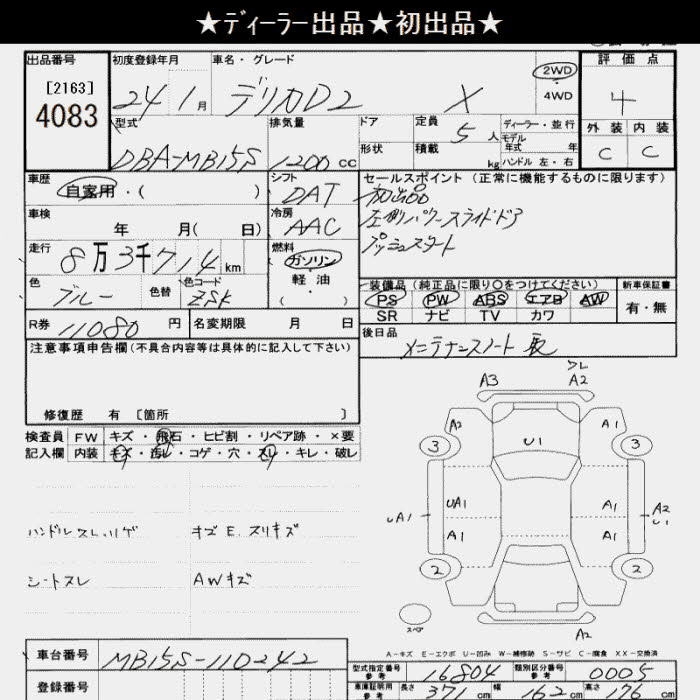 ★ディーラー出品★初出品★
出品番号
[2163]
4083
初度登録年月
車名・グレード
24 1月
デリカD2
X
2WD
4WD
評価点
4
外装 内装
C C
型式
DBA-MB15S
排気量
1200 cc
ドア
形状
定員
5人
積載
kg
ディーラー・並行
モデル
年式 年
ハンドル 左・右
車歴
自家用・( )
シフト
DAT
セールスポイント (正常に機能するものに限ります)
初出品
左側パワースライドドア
プッシュスタート
車検
年 月( 日)
冷房
AAC
走行
8万3千714km
燃料
ガソリン
軽油
( )
色
ブルー
色替
色コード
ZSK
装備品(純正品に限り○をつけてください)
PS PW ABS エアB AW
SR ナビ TV カワ
新車保証書
有・無
R券
11080円
名変期限 月 日
後日品
メンテナンスノート
注意事項申告欄(不具合内容等は具体的に記入して下さい)
修復歴 有 [箇所 ]
検査員 FW キズ・飛石・ヒビ割・リペア跡・×要
記入欄 内装 キズ・汚れ・コゲ・穴・スレ・キレ・破レ
ハンドルスレ、ハゲ
キズE スリキズ
シートスレ
AWキズ
A3 A2
A2 A1
3 U1 3
UA1 A1
UA1 A2
U1
A1 A1
2 2
スペア
A2
A-キズ E-エクボ U-凹み W-補修跡 S-サビ C-腐食 XX-交換済
車台番号
MB15S-110242
登録番号
型式指定番号
参考
16804
類別区分番号
参考
0005
車庫証明用
参考
長さ
371cm
幅
162cm
高さ
176cm